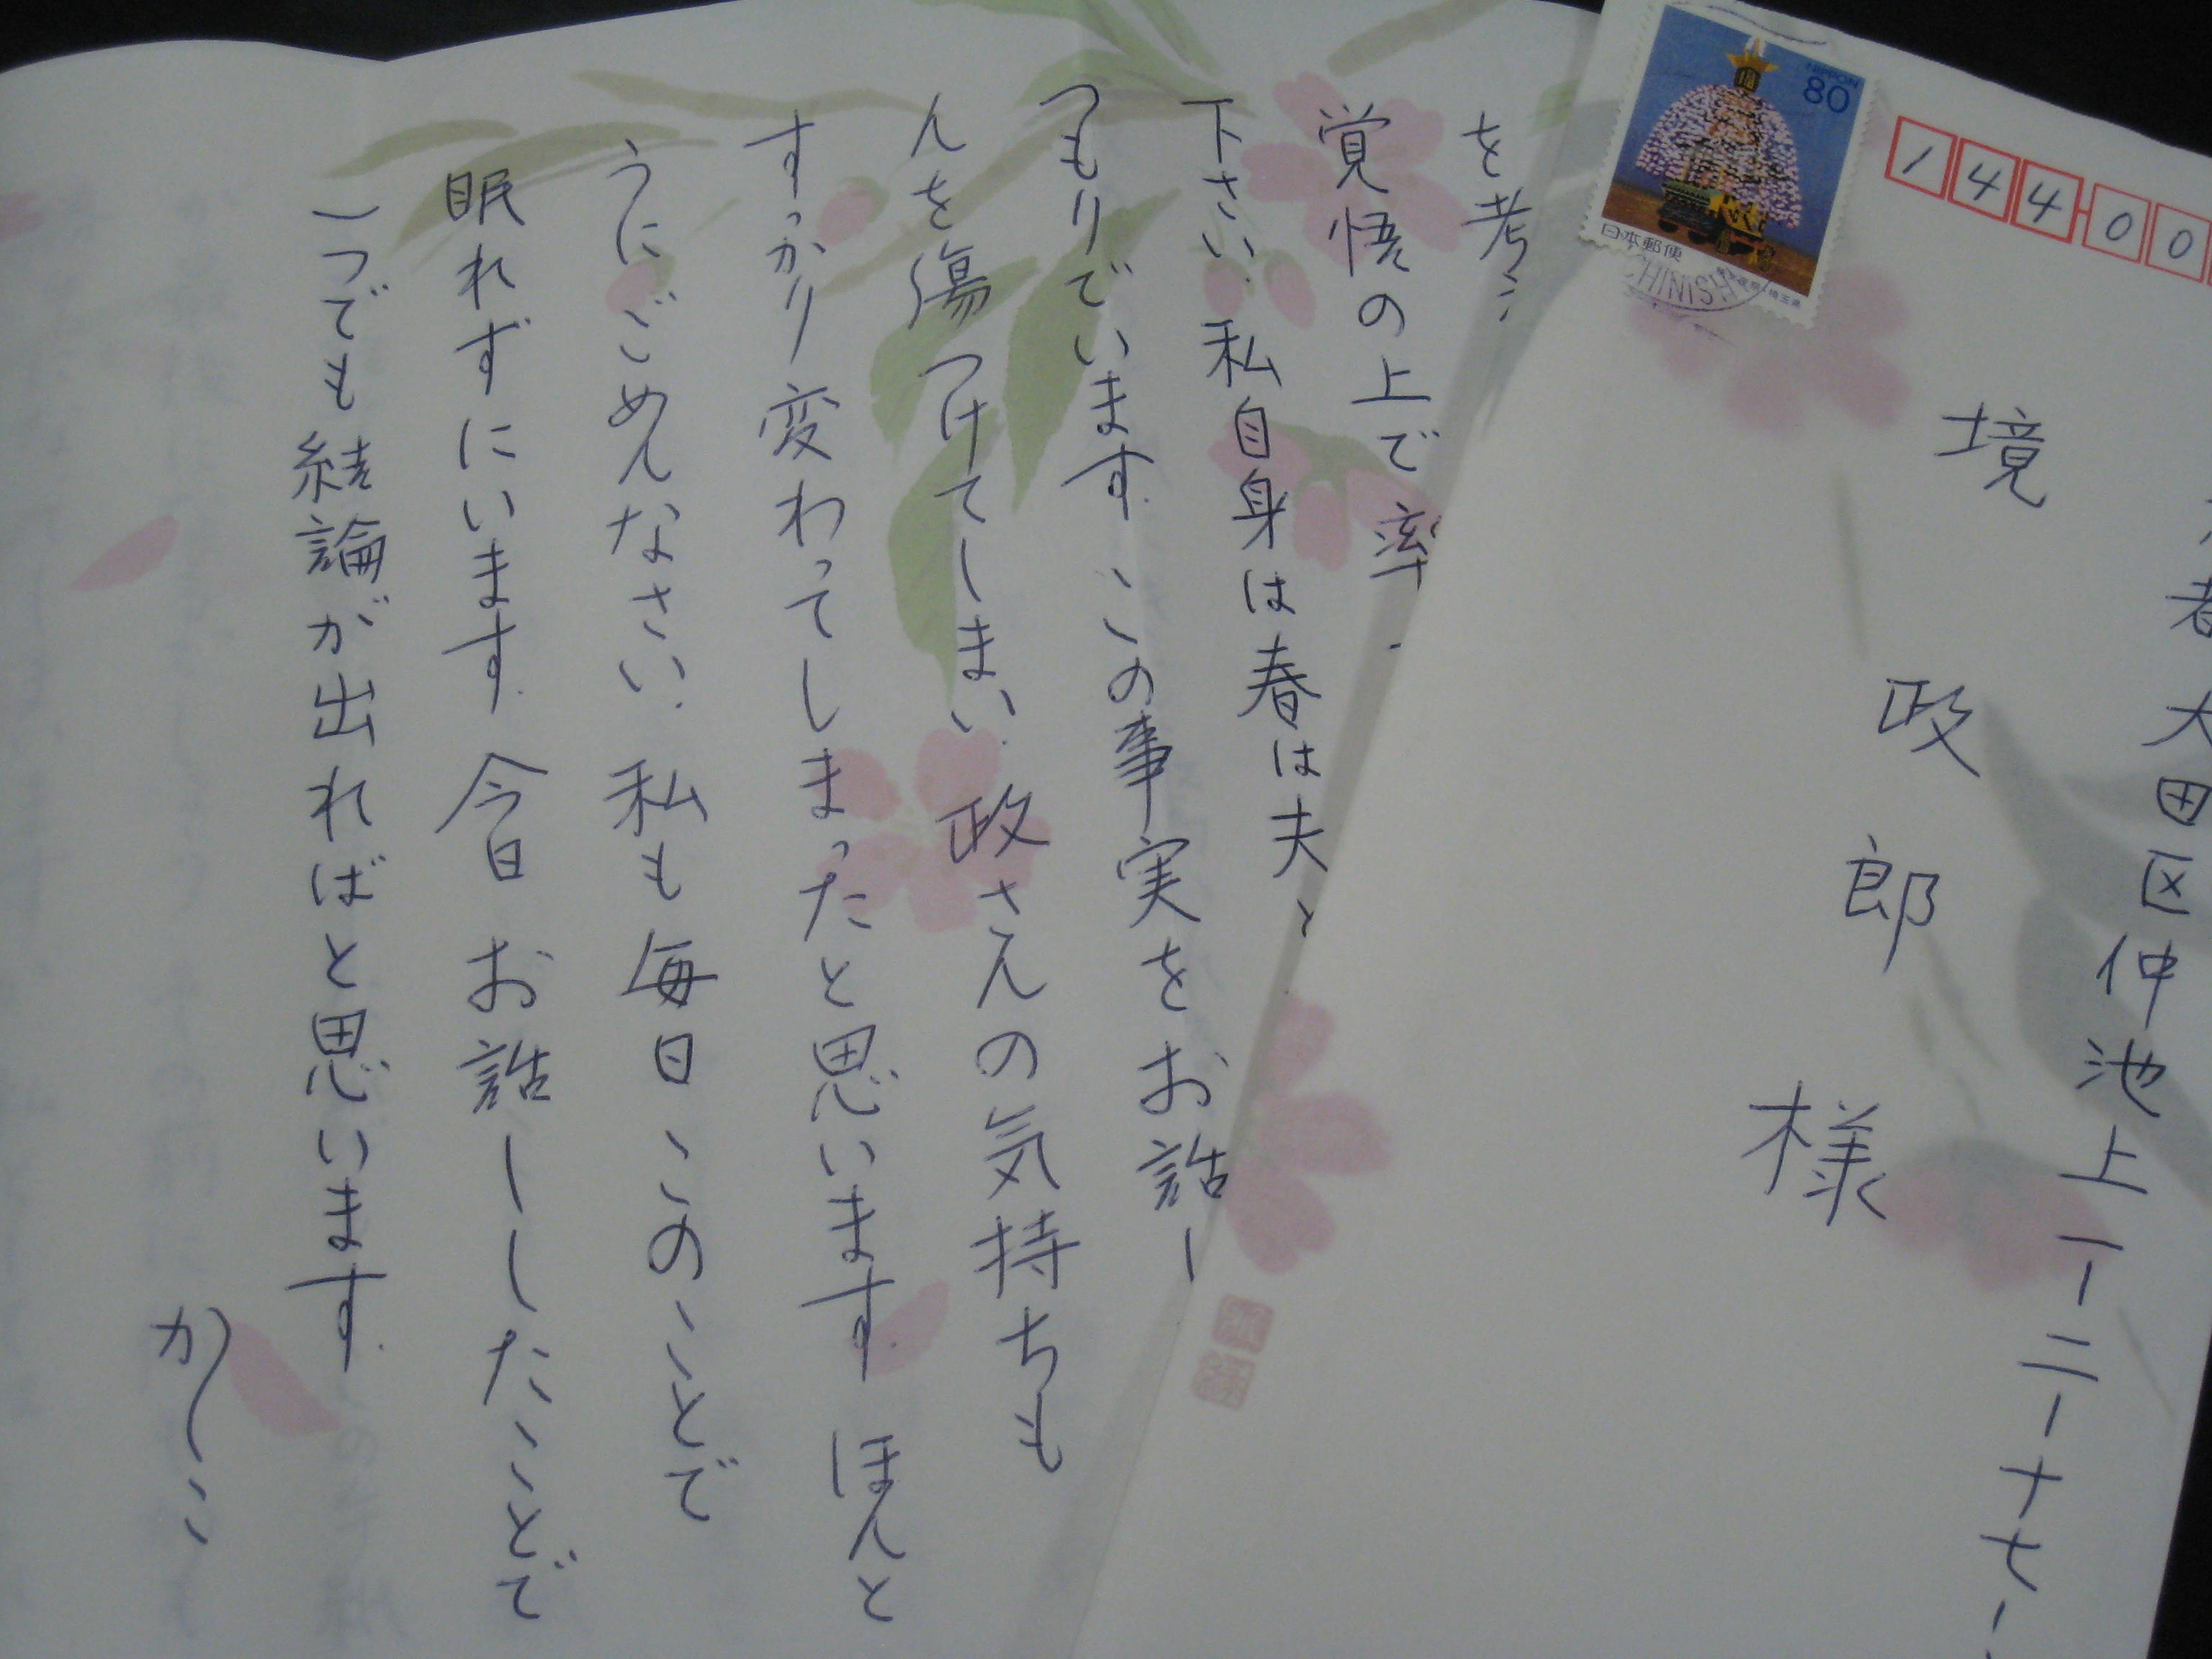 NIPPON
80
日本郵便
CHINISH
144-00
大田区仲池上一ー二ー十七ー
境 政郎 様
を考え
覚悟の上で率
下さい.私自身は春は夫と
つもりでいます.この事実をお話し
んを傷つけてしまい.政さんの気持ちも
すっかり変わってしまったと思います.ほんと
うにごめんなさい.私も毎日このことで
眠れずにいます.今日お話ししたことで
一つでも結論が出ればと思います.
かしこ